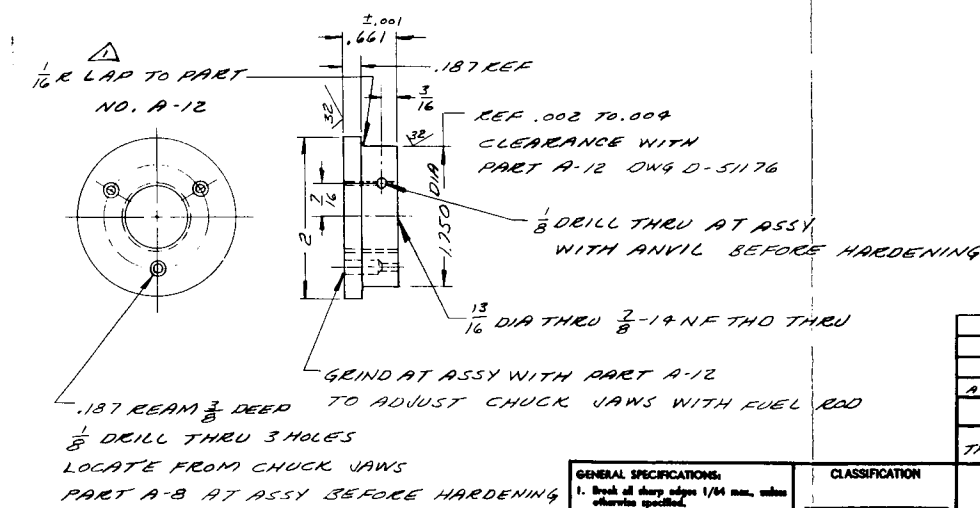 ±.001
.661
1
1/16 R LAP TO PART
NO. A-12
.187 REF
3/16
32
32
REF .002 TO .004
CLEARANCE WITH
PART A-12 DWG D-51176
7/16
2
1.750 DIA
1/8 DRILL THRU AT ASSY
WITH ANVIL BEFORE HARDENING
13/16 DIA THRU 7/8-14 NF THD THRU
GRIND AT ASSY WITH PART A-12
TO ADJUST CHUCK JAWS WITH FUEL ROD
.187 REAM 3/8 DEEP
1/8 DRILL THRU 3 HOLES
LOCATE FROM CHUCK JAWS
PART A-8 AT ASSY BEFORE HARDENING
GENERAL SPECIFICATIONS:
1. Break all sharp edges 1/64 max., unless
otherwise specified.
CLASSIFICATION
A